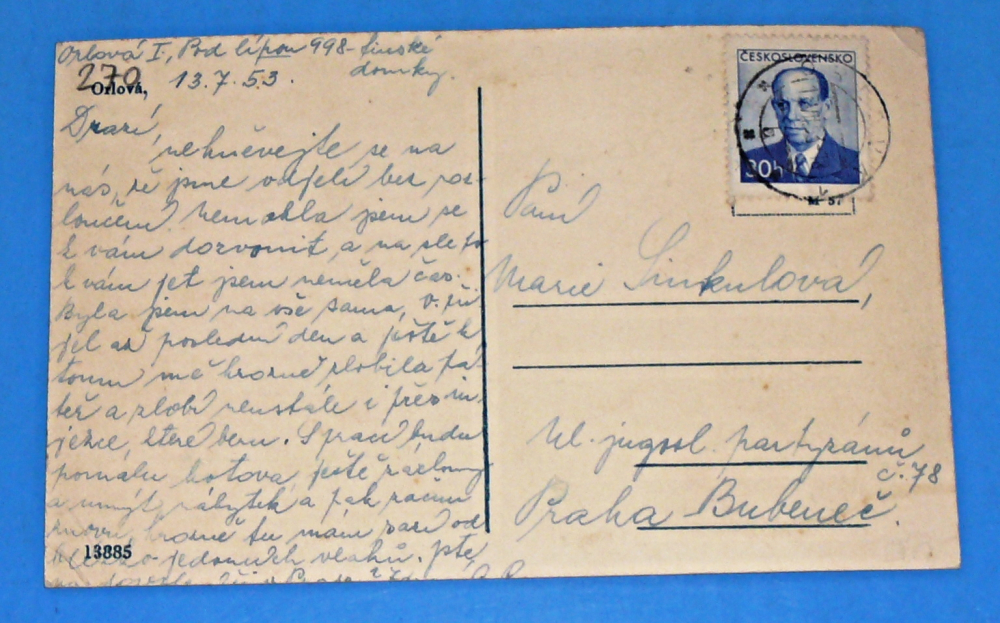 Orlová I, Pod lípou 998 - finské
domky.
270
Orlová,
13.7.53.
Drazí,
nehněvejte se na
nás, že jsme odjeli bez roz-
loučení. Nemohla jsem se
k vám dozvonit, a na
k vám jet jsem neměla čas.
Byla jsem na vše sama,
jel až poslední den a ještě k
tomu mě hrozně zlobila pá-
teř a zlobí neustále i přes in-
jekce, které beru. S prací budu
pomalu hotova, ještě záclony
a umýt nábytek a pak začnu
znovu, hrozné tu mám saze od
jedoucích vlaků.
13885
ČESKOSLOVENSKO
30h
Paní
Marie Sinkulová,
Ul. jugosl. partyzánů
č. 78
Praha Bubeneč.